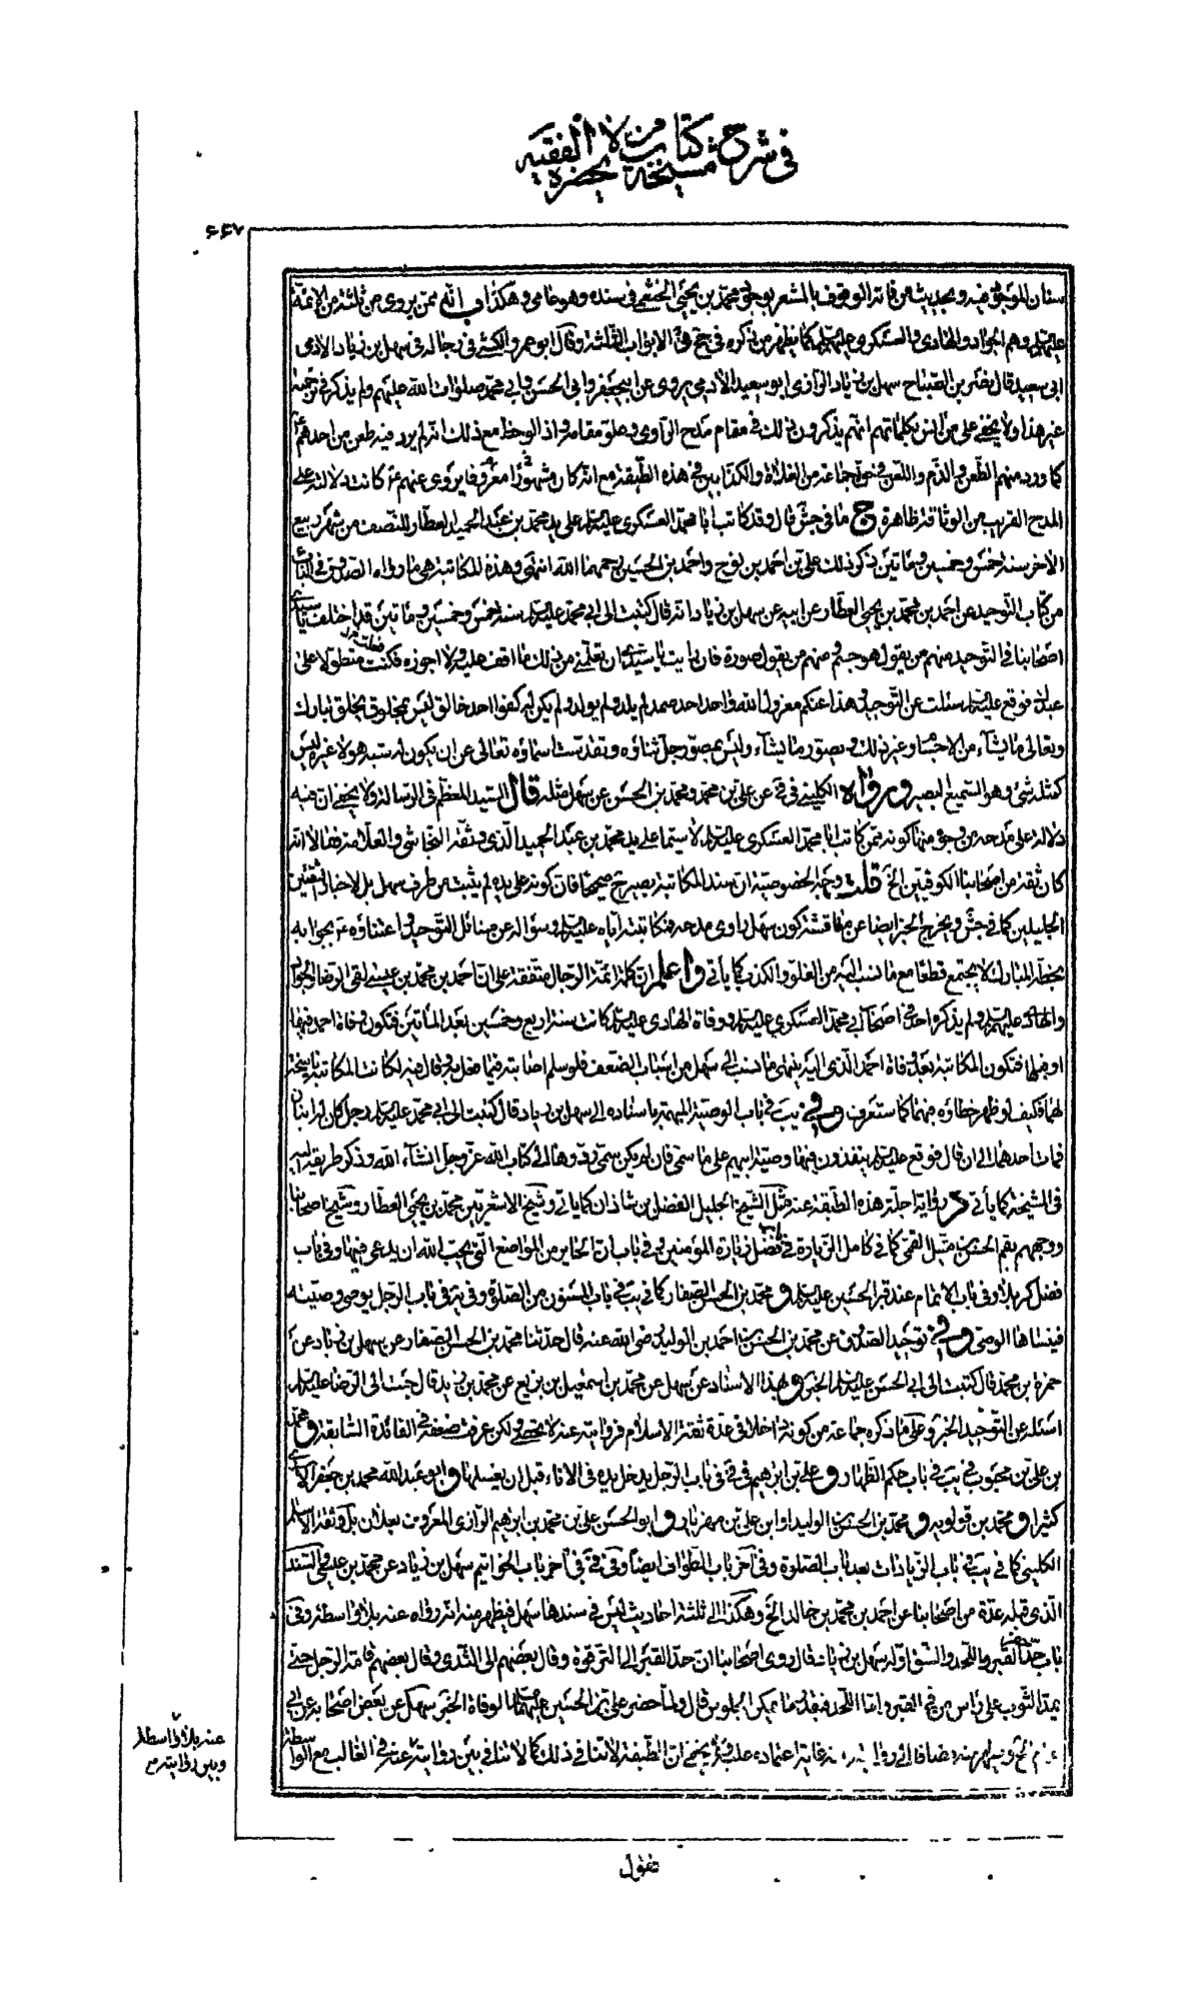 في شرح مشيخة كتاب من لا يحضره الفقيه
۶۶۷
سنان الموجود فيه وبحديث من فاته الوقوف بالمشعر بوجود محمد بن يحيى الخثعمي في سنده وهو عامي وهكذا ب انه ممن يروي من ثلثة من الائمة
عليهم السلام وهم الجواد والهادي والعسكري عليهم السلام كما يظهر من ذكره في جخ في الابواب الثلثة وقال ابو عمرو الكشي في رجاله في سهل بن زياد الادمي
ابي سعيد قال نصر بن الصباح سهل بن زياد الرازي ابو سعيد الادمي يروي عن ابيجعفر وابي الحسن وابي محمد صلوات الله عليهم ولم يذكر في ترجمته
غير هذا ولا يخفى على من انس بكلماتهم انهم يذكرون ذلك في مقام مدح الراوي وعلو مقامه واذا لوحظ مع ذلك انه لم يرد فيه طعن من احدهم
كما ورد منهم الطعن والذم واللعن في حق جماعة من الغلاة والكذابين في هذه الطبقة مع انه كان مشهورا معروفا يروي عنهم كانت دلالته على
المدح القريب من الوثاقة ظاهرة ج ما في جش قال وقد كاتب ابا محمد العسكري عليه السلام على يد محمد بن عبد الحميد العطار للنصف من شهر ربيع
الاخر سنة خمس وخمسين ومأتين ذكر ذلك علي بن احمد بن نوح واحمد بن الحسين رحمهما الله انتهى وهذه المكاتبة هي ما رواه الصدوق في
من كتاب التوحيد عن احمد بن محمد بن يحيى العطار عن ابيه عن سهل بن زياد انه قال كتبت الى ابي محمد عليه السلام سنة خمس وخمسين ومأتين قد اختلف يا سيدي
اصحابنا في التوحيد منهم من يقول هو جسم ومنهم من يقول صورة فان رايت يا سيدي ان تعلمني من ذلك ما اقف عليه ولا اجوزه فعلت متطولا على
عبدك فوقع عليه السلام سئلت عن التوحيد وهذا عنكم معزول الله واحد احد صمد لم يلد ولم يولد ولم يكن له كفوا احد خالق ليس بمخلوق يخلق تبارك
وتعالى ما يشاء من الاجسام وغير ذلك ويصور ما يشاء وليس بمصور جل ثناؤه وتقدست اسماؤه وتعالى عن ان يكون له شبه هو لا غيره ليس
كمثله شئ وهو السميع البصير ورواه الكليني في في عن علي بن محمد ومحمد بن الحسن عن سهل مثله قال السيد المعظم في الرسالة ولا يخفى ان فيه
دلالة على مدحه من وجوه منها كونه ممن كاتب ابا محمد العسكري عليه السلام لا سيما على يد محمد بن عبد الحميد الذي وثقه النجاشي والعلامة فقالا انه
كان ثقة من اصحابنا الكوفيين الخ قلت وجه الخصوصية ان سند المكاتبة يصير ح صحيحا فان كونه على يده لم يثبت من طرف سهل بل لاخبار الشيخين
الجليلين كما في جش ويخرج الخبر ايضا عن مناقشة كون سهل راوي مدحه فمكاتبته اياه عليه السلام وسؤاله عن مسائل التوحيد واعتناؤه بجوابه
بخطه المبارك لا يجتمع قطعا مع ما نسب اليه من الغلو والكذب كما يأتي واعلم ان كلمة ائمة الرجال متفقة على ان احمد بن محمد بن عيسى لقى الرضا والجواد
والهادي عليهم السلام ولم يذكره احد في اصحاب ابي محمد العسكري عليه السلام ووفاة الهادي عليه السلام كانت سنة اربع وخمسين بعد المأتين فتكون وفاة احمد فيها
او قبلها فتكون المكاتبة بعد وفاة احمد الذي اليه ينتهي ما نسب الى سهل من اسباب الضعف فلو سلم اصابته فيما فعل به وقال فيه لكانت المكاتبة ناسخة
لهما فكيف لو ظهر خطاؤه فيهما كما ستعرف وفي يب في باب الوصية المبهمة باسناده الى سهل بن زياد قال كتبت الى ابي محمد عليه السلام رجل كان له ابنان
فمات احدهما الى ان قال فوقع عليه السلام ينفذون فيها وصية ابيهم على ما سمى فان لم يكن سمى ردوها الى كتاب الله عز وجل انشاء الله وذكر طريقه اليه
في المشيخة كما يأتي د رواية اجلة هذه الطبقة عنه مثل الشيخ الجليل الفضل بن شاذان كما ياتي وشيخ الاشعريين محمد بن يحيى العطار وشيخ اصحابنا
ووجههم بقم الحسن بن متيل القمي كما في كامل الزيارة في فضل زيارة المؤمنين وفي باب ان الحاير من المواضع التي يحب الله ان يدعى فيها وفي باب
فضل كربلا وفي باب الاتمام عند قبر الحسين عليه السلام ومحمد بن الحسن الصفار كما في يب في باب المسنون من الصلوة وفي يه في باب الرجل يوصى وصيته
فينساها الوصي وفي توحيد الصدوق عن محمد بن الحسن بن احمد بن الوليد رضي الله عنه قال حدثنا محمد بن الحسن الصفار عن سهل بن زياد عن
حمزة بن محمد قال كتبت الى ابي الحسن عليه السلام الخبر وبهذا الاسناد عن سهل عن محمد بن اسمعيل بن بزيع عن محمد بن زيد قال جئت الى الرضا عليه السلام
اسئله عن التوحيد الخبر وعلى ما ذكره جماعة من كونه داخلا في عدة ثقة الاسلام فروايته عنه لا تحصى ولكن عرفت ضعفه في الفائدة السابقة ومحمد
بن علي بن محبوب في يب في باب حكم الظهار وعلي بن ابرهيم في في في باب الرجل يدخل يده في الاناء قبل ان يغسلها وابو عبد الله محمد بن جعفر الاسدي
كثيرا ومحمد بن قولويه ومحمد بن الحسن بن الوليد او ابن علي بن مهزيار وابو الحسن علي بن محمد بن ابرهيم الرازي المعروف بعلان بل وثقة الاسلام
الكليني كما في يب في باب الزيادات بعد باب الصلوة وفي آخر باب الطواف ايضا وفي في في آخر باب الخواتيم سهل بن زياد عن محمد بن عيسى والسند
الذي قبله عدة من اصحابنا عن احمد بن محمد بن خالد الخ وهكذا الى ثلثة احاديث ليس في سندها سهل فيظهر منه انه رواه عنه بلا واسطة وفي
باب حد القبر واللحد والشق اوله سهل بن زياد قال روى اصحابنا ان حد القبر الى الترقوة وقال بعضهم الى الثدي وقال بعضهم قامة الرجل حتى
يمد الثوب على راس من في القبر واما اللحد فبقدر ما يمكن الجلوس قال ولما حضر علي بن الحسين عليهما السلام الوفاة الخبر سهل عن بعض اصحابه عن ابي
الخ ويظهر منه مضافا الى روايته عنه غاية اعتماده عليه ولا يخفى ان الطبقة لا تنافي ذلك كما لا تنافي بين روايته عنه في الغالب مع الواسطة
عنه بلا واسطة
وبين روايته م
تقول